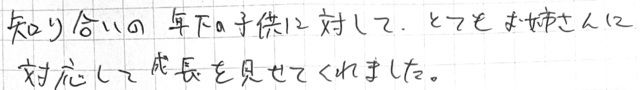 知り合いの年下の子供に対して、とてもお姉さんに
対応して成長を見せてくれました。